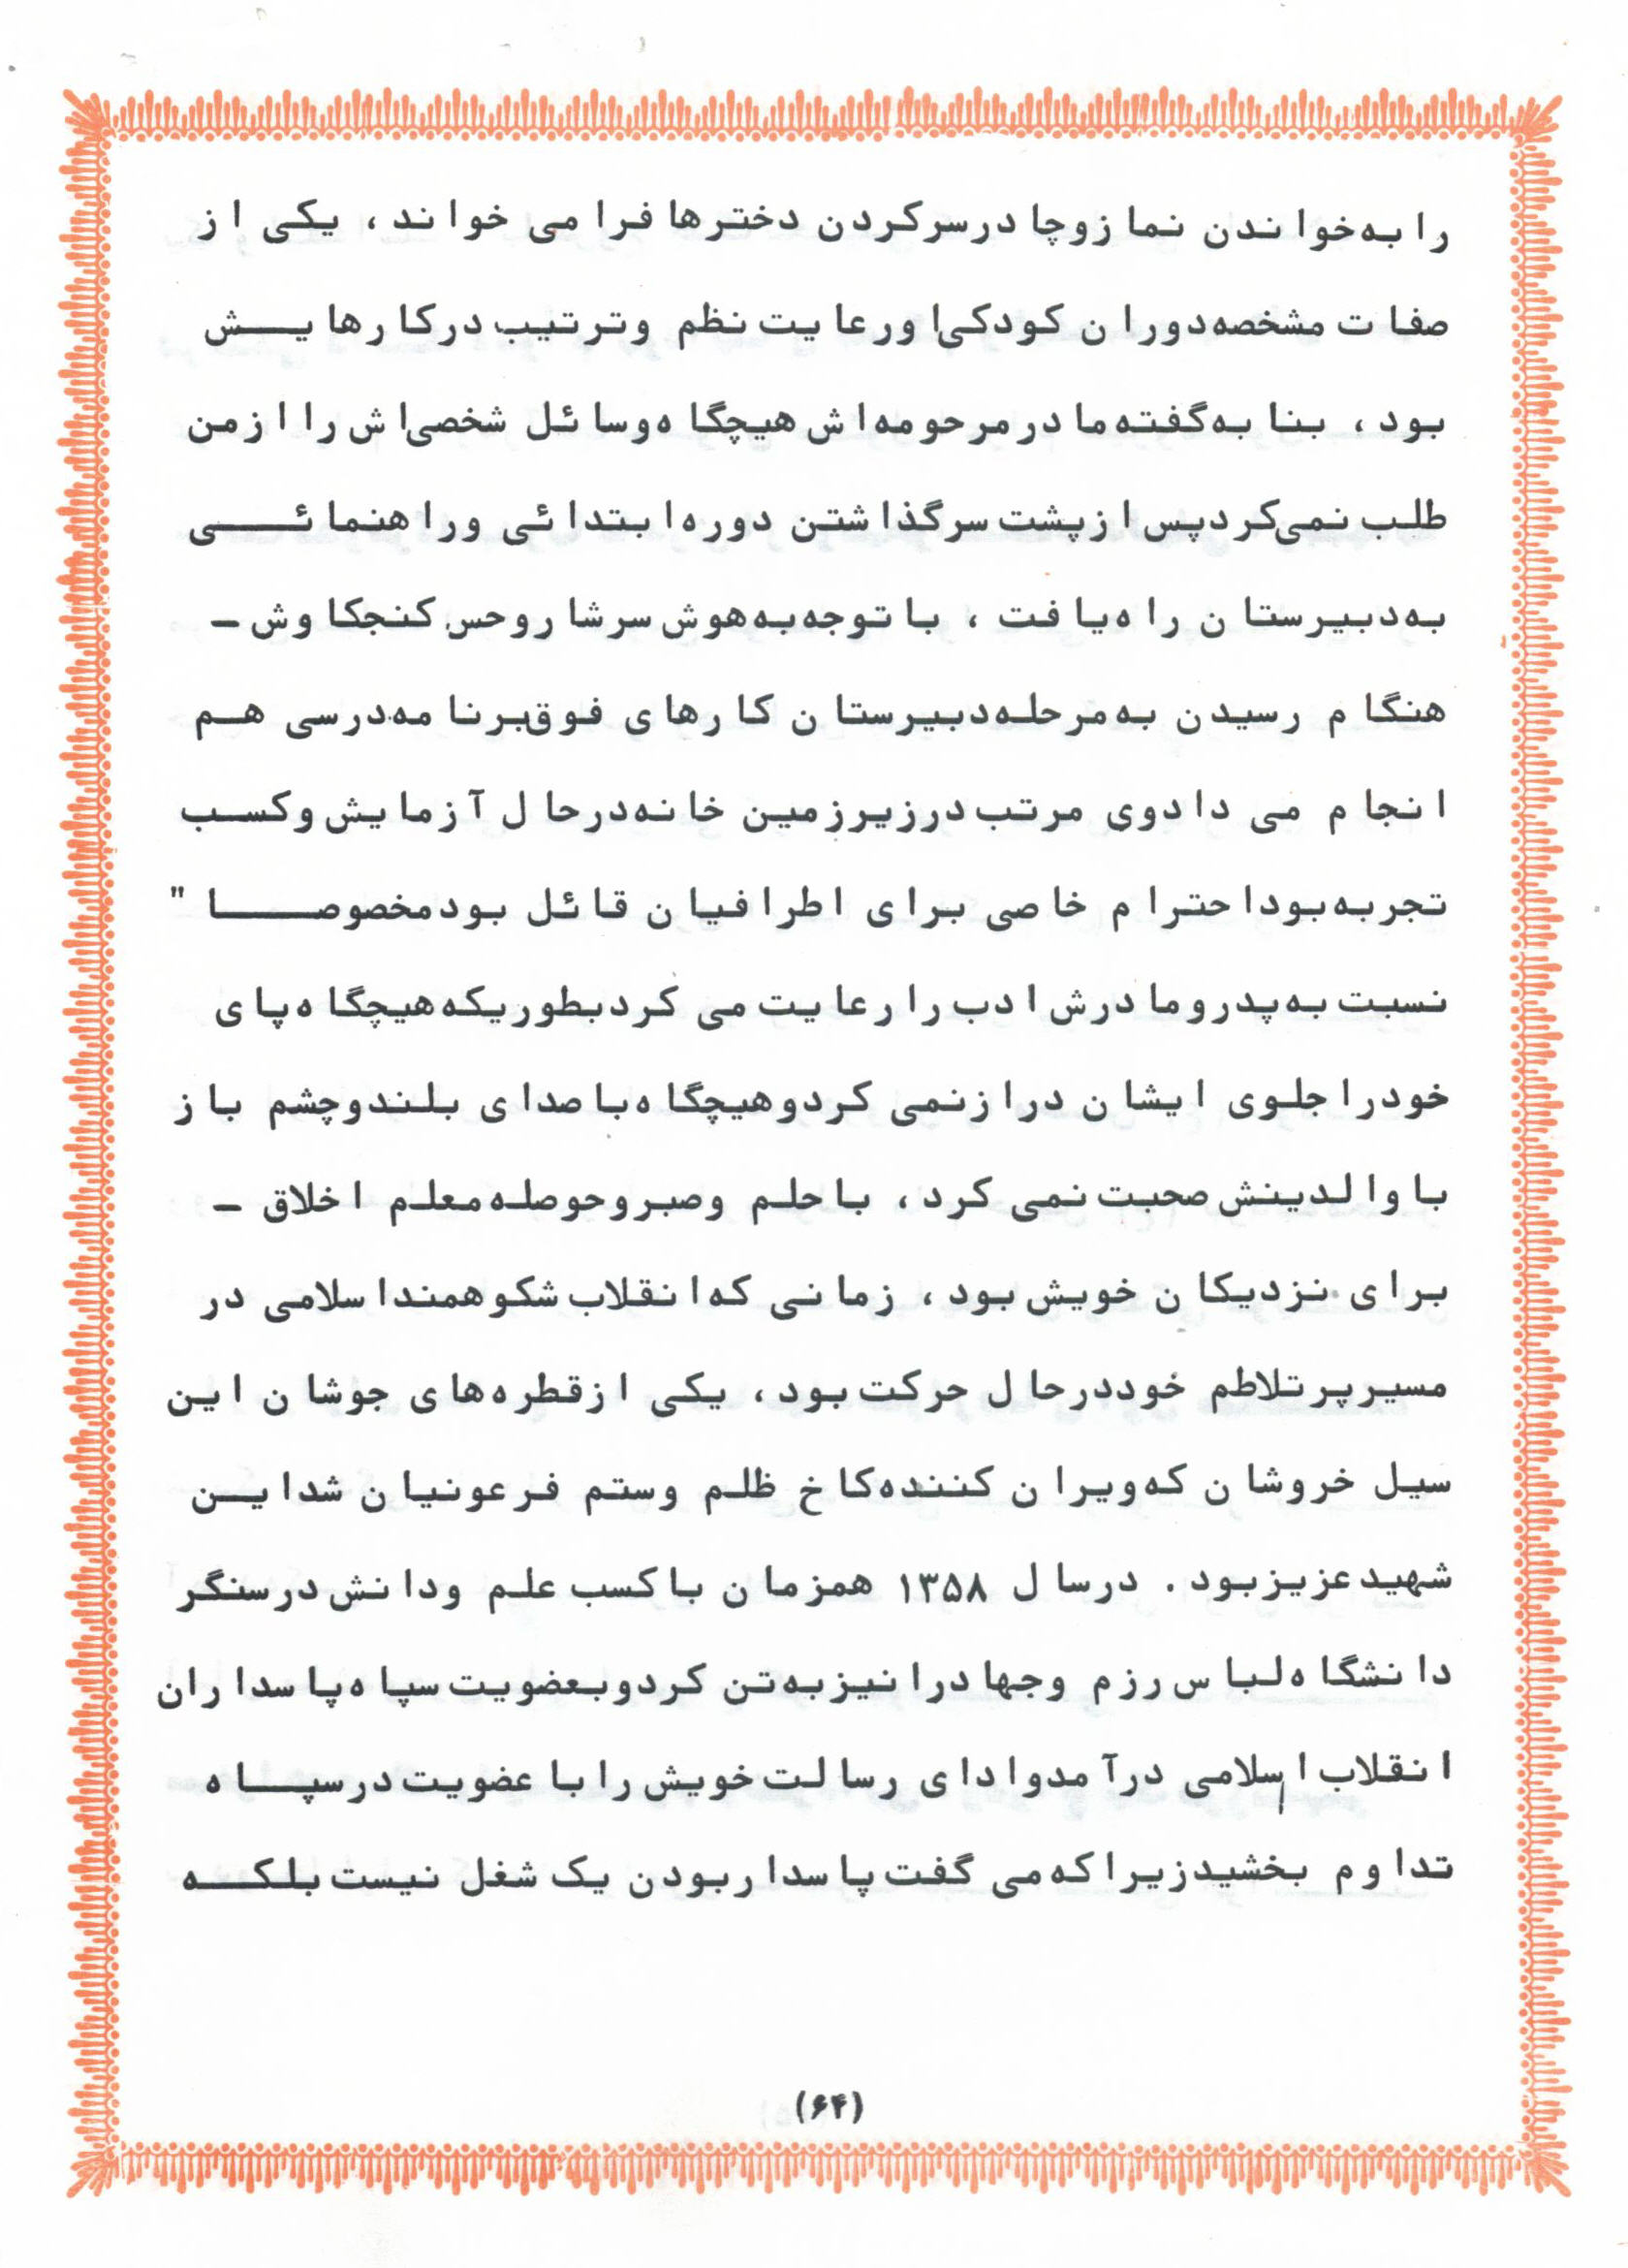 را به خواندن نماز و چادر سر کردن دخترها فرا می خواند ، یکی از
صفات مشخصه دوران کودکی او رعایت نظم و ترتیب در کارهایش
بود ، بنا به گفته مادر مرحومه اش هیچگاه وسائل شخصی اش را از من
طلب نمی کرد پس از پشت سر گذاشتن دوره ابتدائی و راهنمائی
به دبیرستان راه یافت ، با توجه به هوش سرشار و حس کنجکاوش -
هنگام رسیدن به مرحله دبیرستان کارهای فوق برنامه درسی هم
انجام می داد وی مرتب در زیرزمین خانه در حال آزمایش و کسب
تجربه بود احترام خاصی برای اطرافیان قائل بود مخصوصا "
نسبت به پدر و مادرش ادب را رعایت می کرد بطوریکه هیچگاه پای
خود را جلوی ایشان دراز نمی کرد و هیچگاه با صدای بلند و چشم باز
با والدینش صحبت نمی کرد ، با حلم و صبر و حوصله معلم اخلاق -
برای نزدیکان خویش بود ، زمانی که انقلاب شکوهمند اسلامی در
مسیر پر تلاطم خود در حال حرکت بود ، یکی از قطره های جوشان این
سیل خروشان که ویران کننده کاخ ظلم و ستم فرعونیان شد این
شهید عزیز بود . در سال ۱۳۵۸ همزمان با کسب علم و دانش در سنگر
دانشگاه لباس رزم و جهاد را نیز به تن کرد و بعضویت سپاه پاسداران
انقلاب اسلامی در آمد و ادای رسالت خویش را با عضویت در سپاه
تداوم بخشید زیرا که می گفت پاسدار بودن یک شغل نیست بلکه
(۶۴)